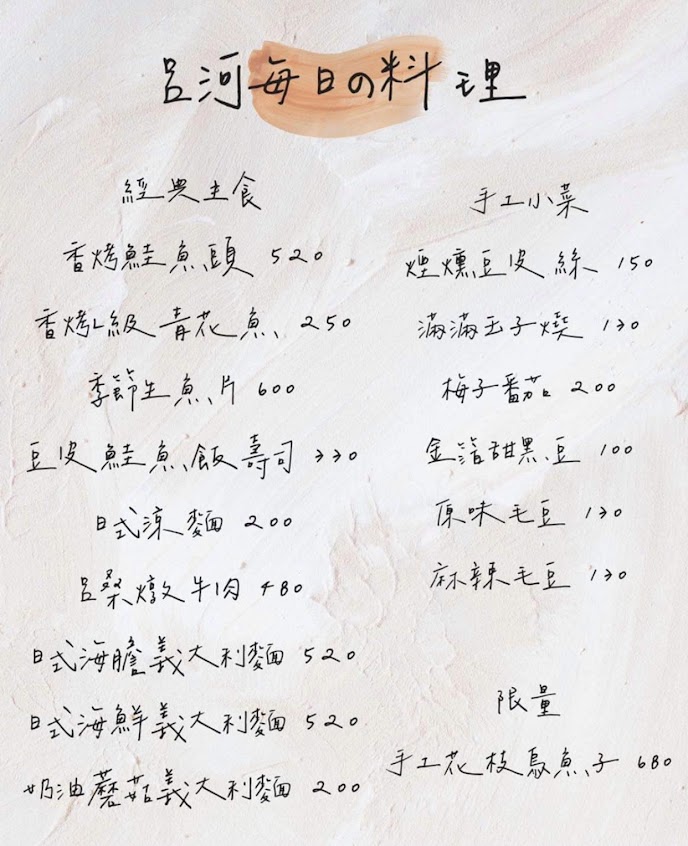 呂河每日の料理
經典主食
香烤鮭魚頭 520
香烤L級青花魚 250
季節生魚片 600
豆皮鮭魚飯壽司 330
日式涼麵 200
呂桑燉牛肉 480
日式海膽義大利麵 520
日式海鮮義大利麵 520
奶油蘑菇義大利麵 200
手工小菜
煙燻豆皮絲 150
滿滿玉子燒 130
梅子番茄 200
金箔甜黑豆 100
原味毛豆 130
麻辣毛豆 130
限量
手工花枝烏魚子 680